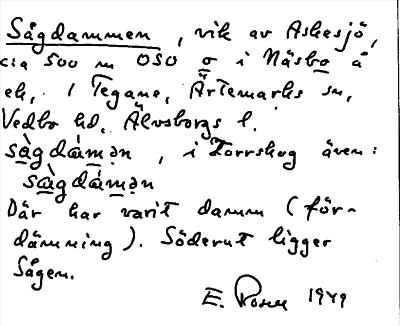 Sågdammen, vik av Askesjö,
cia 500 m OSO o i Näsbo å
ek, i Tegane, Ärtemarks sn,
Vedbo hd, Älvsborgs l.
sàgdám̥ən, i Torrskog även:
sàgdám̥ən
Där har varit damm (för-
dämning). Söderut ligger
Sågen.
E. Rosen 1949